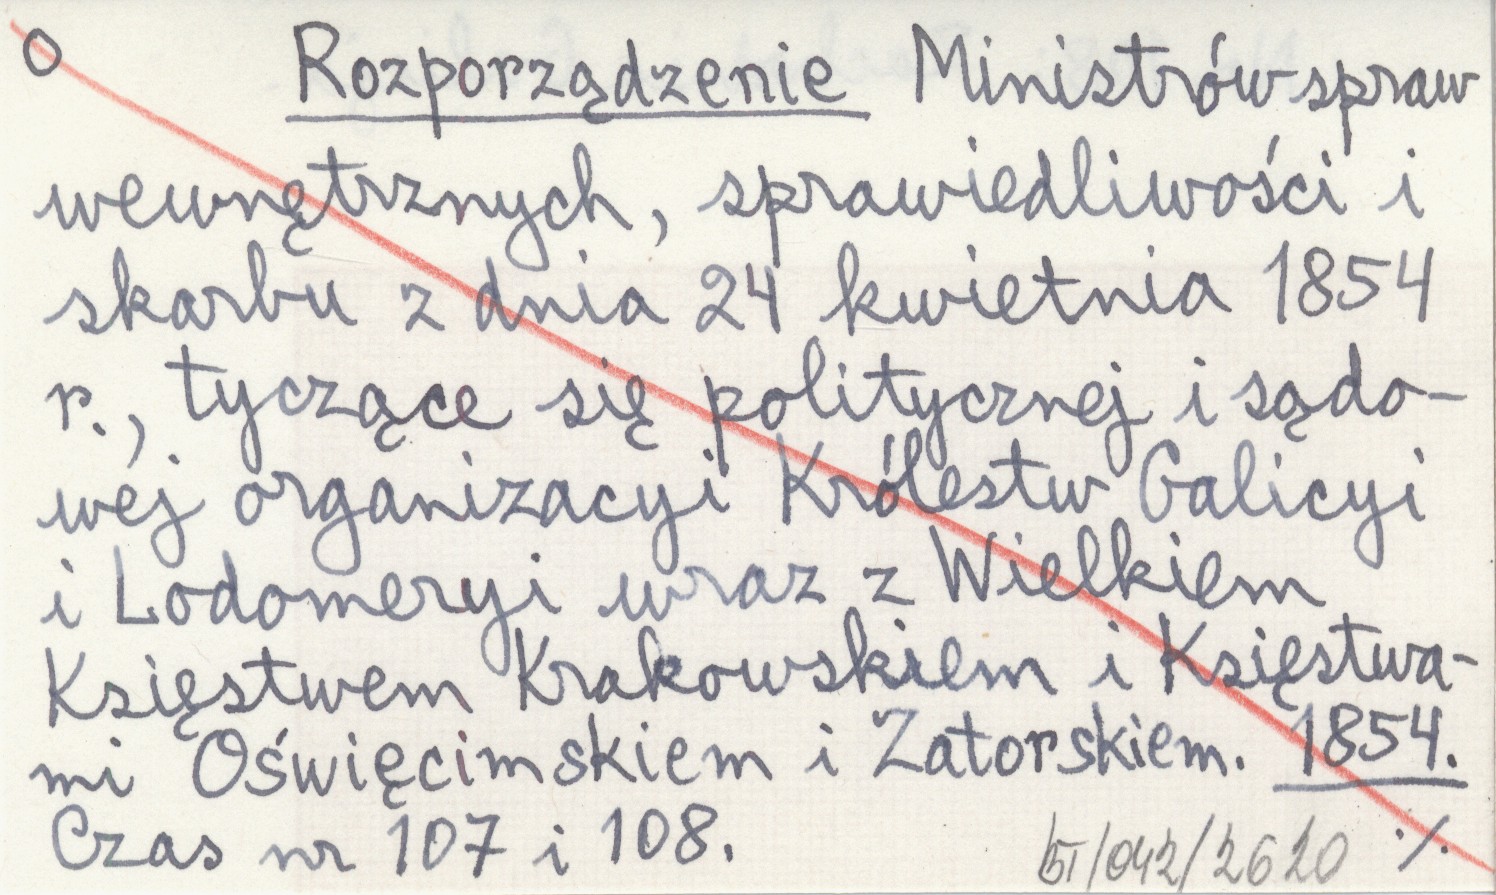 O Rozporządzenie Ministrów spraw
wewnętrznych, sprawiedliwości i
skarbu z dnia 24 kwietnia 1854
r., tyczące się politycznej i sądo-
wej organizacyi Królestw Galicyi
i Lodomeryi wraz z Wielkiem
Księstwem Krakowskiem i Księstwa-
mi Oświęcimskiem i Zatorskiem. 1854.
Czas nr 107 i 108.
/042/2620 ./.